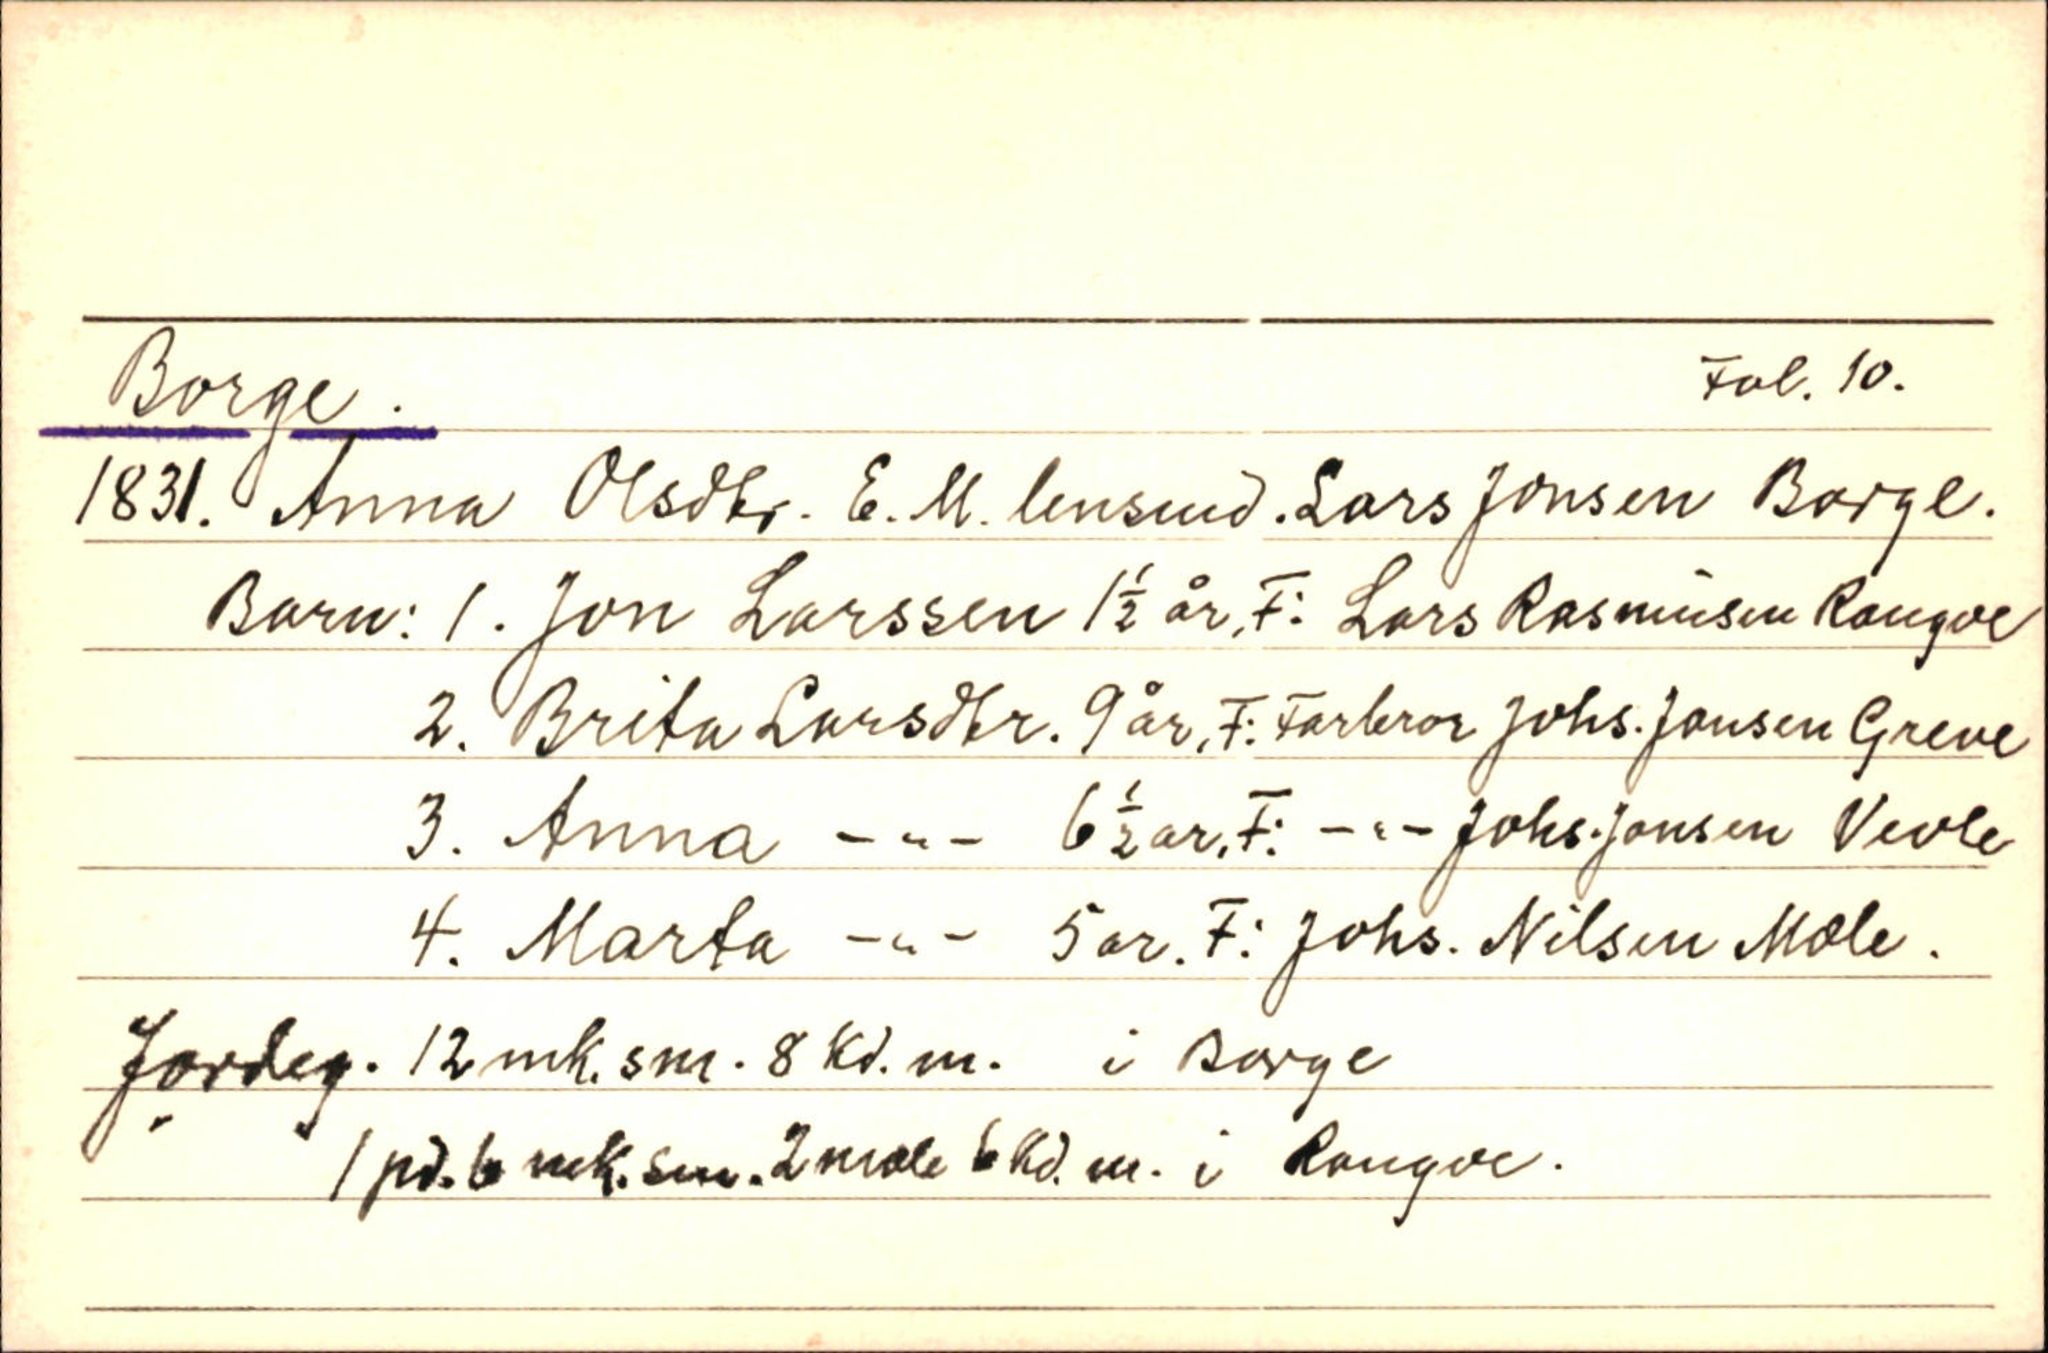 Borge. Fol. 10.
1831. Anna Olsdtr. E. M. lensmd. Lars Jonsen Borge.
Barn: 1. Jon Larssen 1½ år, F: Lars Rasmusen Rongve
2. Brita Larsdtr. 9 år, F: Farbror Johs. Jonsen Greve
3. Anna -"- 6½ ar, F: -"- Johs. Jonsen Vevle
4. Marta -"- 5 ar. F: Johs. Nilsen Mæle.
Jordeg. 12 mk. sm. 8 kd. m. i Borge
1 pd. 6 mk. sm. 2 mæle 6 kd. m. i Rongve.